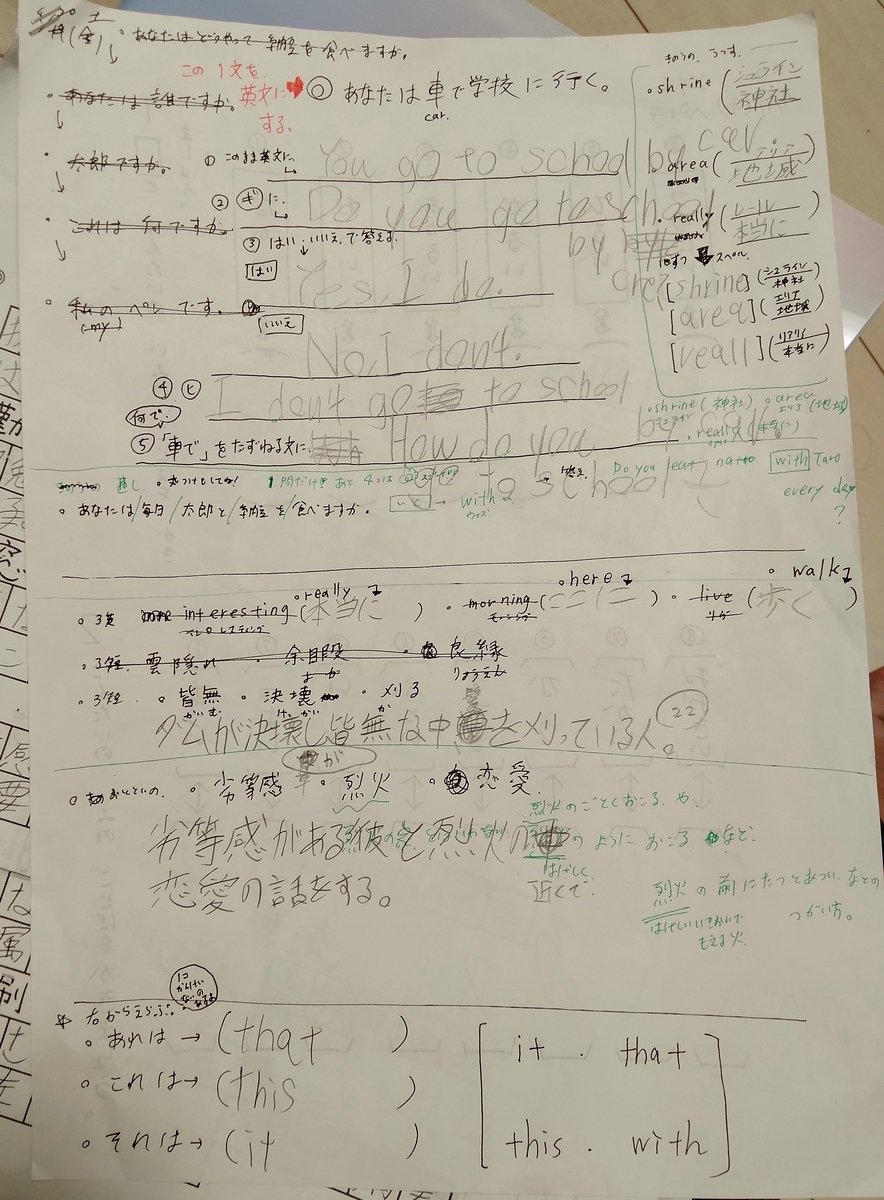 (金) あなたはどうやって納豆を食べますか。
この1文を
英文に
する。
◎ あなたは車で学校に行く。
car.
・あなたは誰ですか。
・太郎ですか。
・これは何ですか。
・私のペンです。
(my)
① このまま英文に
You go to school by car.
② ギに。
Do you go to school
by
③ はい、いいえ、で答えす
はい
Yes, I do.
いいえ
No, I don't.
④ ヒ
I don't go to school
by car.
何で?
⑤ 「車で」をたずねる文に
How do you
to school
きのうの、うつす。
・shrine (シュライン 神社)
・area (エリア 地域)
・really (レール 本当に)
スペル。
[shrine] (シュライン 神社)
[area] (エリア 地域)
[reall] (リアリィ 本当に)
・shrine (神社) ・area エリア (地域)
・really (本当に)
直し ・丸つけもしてね! 1問だけ あと4つは
・あなたは/毎日/太郎と/納豆を/食べますか。
いと → with
ウィズ
答え Do you eat natto with Taro
every day
?
・3英 interesting ・really (本当に) ・morning ・here (ここに) ・live ・walk (歩く)
・3短. 雲隠れ ・余暇 ・良縁
よか りょうえん
・3短 ・皆無 ・決壊 ・刈る
かいむ けっかい か
ダムが決壊し皆無な中 を刈っている人。 22
が
・おとといの、 ・劣等感 ・烈火 ・恋愛
劣等感がある彼と烈火の
近くで
恋愛の話をする。
烈火のごとくおこる や
のように おこる など。
はげしく
烈火の前にたつとあつい などの
つかい方。
はげしいいきおいで
もえる火
1コ
かんけい
ないの
あるよ
☆ 右からえらぶ。
・あれは → (that )
・これは → (this )
・それは → (it )
[it . that
this . with]